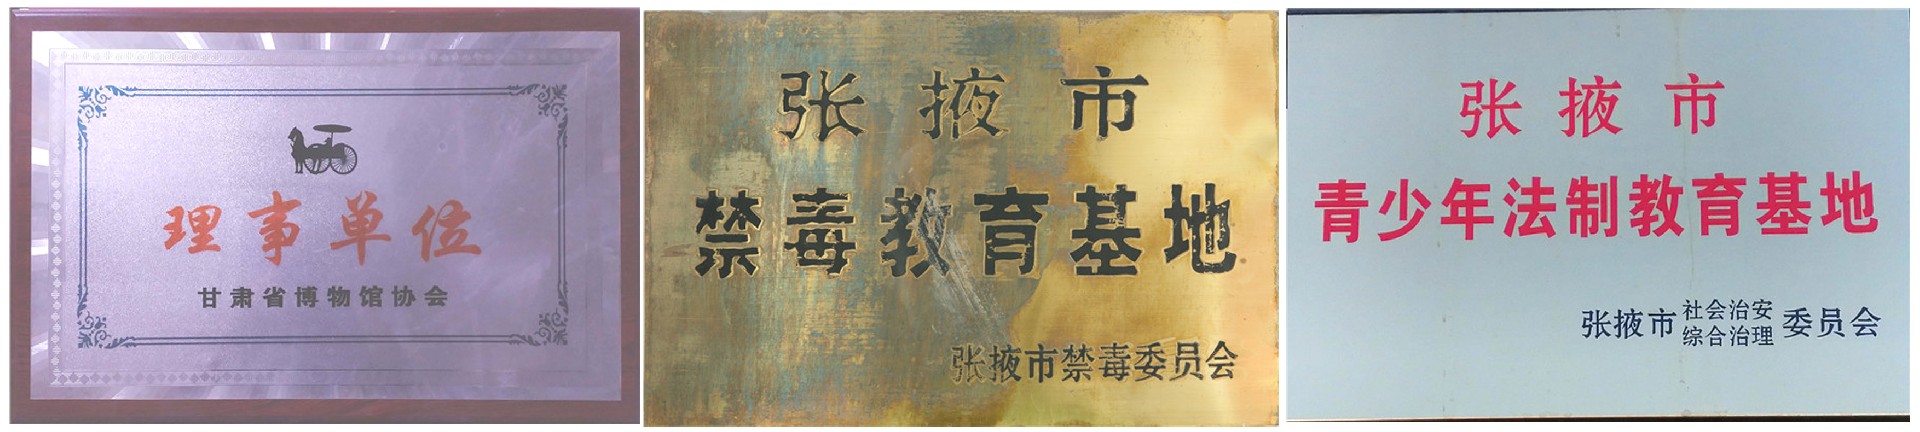 理事单位
甘肃省博物馆协会
张掖市
禁毒教育基地
张掖市禁毒委员会
张掖市
青少年法制教育基地
张掖市社会治安综合治理委员会